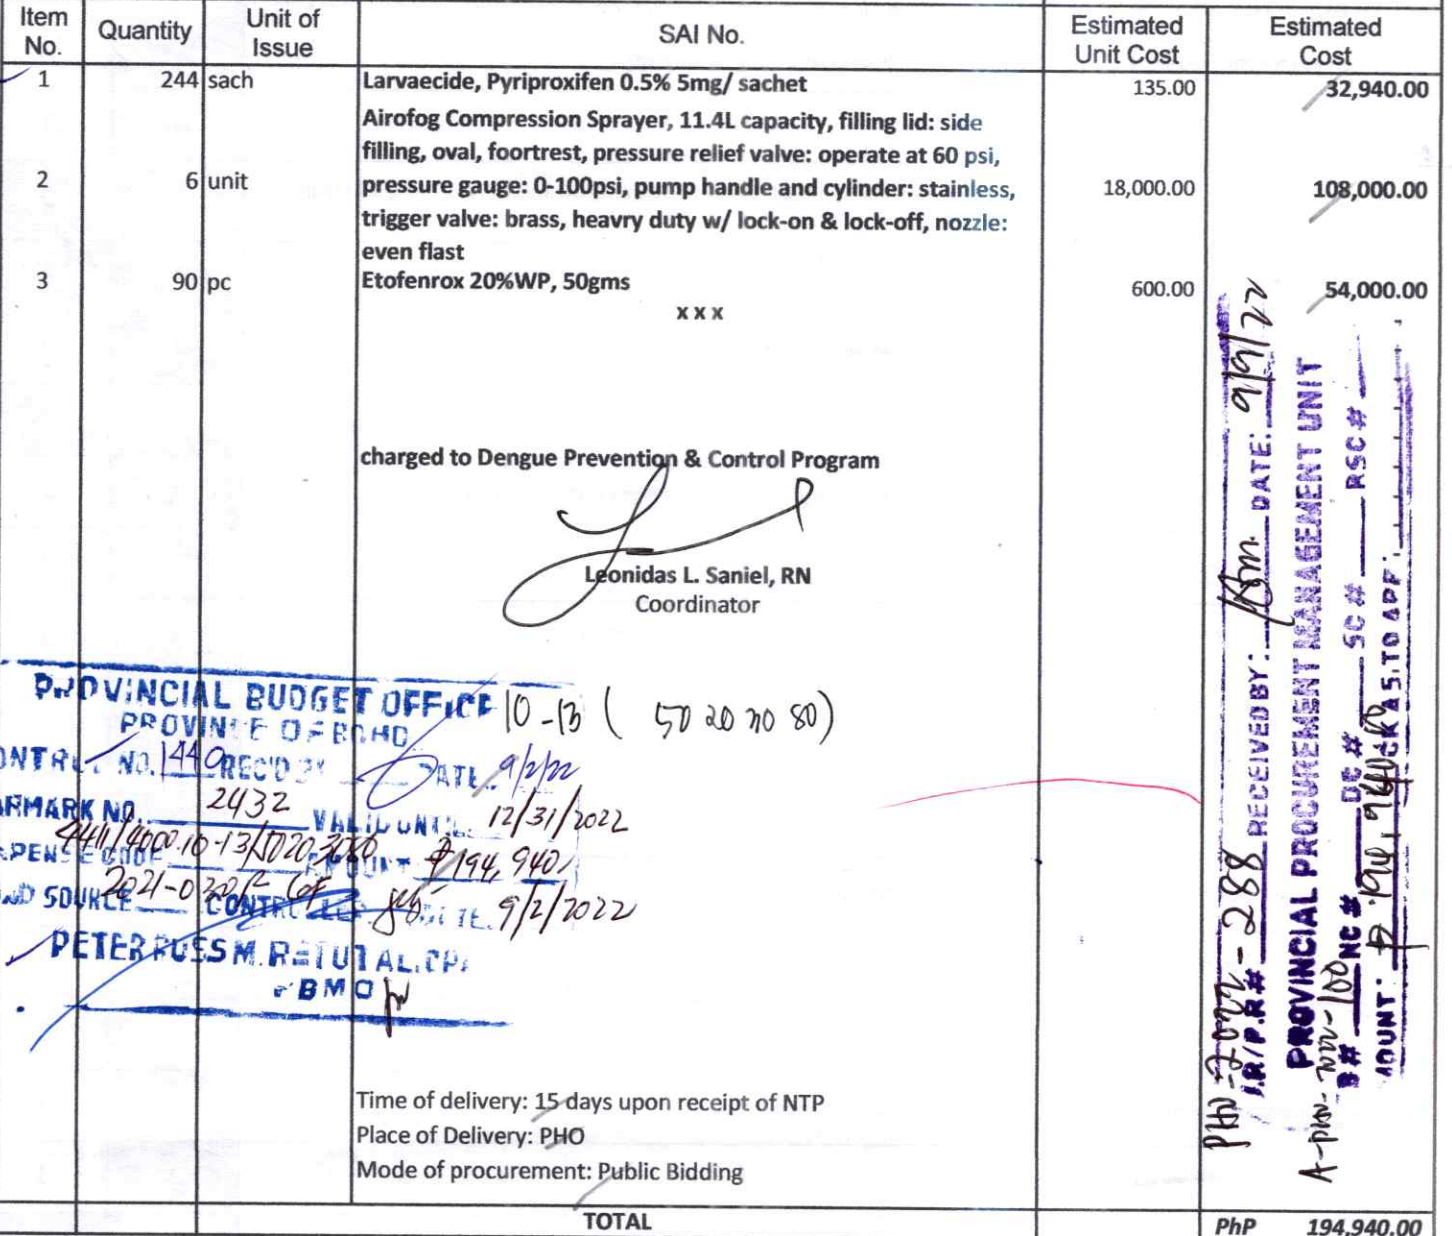 Item No. Quantity Unit of Issue SAI No. Estimated Unit Cost Estimated Cost
1 244 sach Larvaecide, Pyriproxifen 0.5% 5mg/ sachet 135.00 32,940.00
Airofog Compression Sprayer, 11.4L capacity, filling lid: side
filling, oval, foortrest, pressure relief valve: operate at 60 psi,
2 6 unit pressure gauge: 0-100psi, pump handle and cylinder: stainless, 18,000.00 108,000.00
trigger valve: brass, heavry duty w/ lock-on & lock-off, nozzle:
even flast
3 90 pc Etofenrox 20%WP, 50gms 600.00 54,000.00
x x x
charged to Dengue Prevention & Control Program
Leonidas L. Saniel, RN
Coordinator
PROVINCIAL BUDGET OFFICE
10-13 ( 50 20 30 80)
PROVINCE OF BOHO
CONTROL NO. 1440 REC'D BY DATE 9/2/22
EARMARK NO. 2432 VALID UNTIL 12/31/2022
EXPENSE CODE AMOUNT ₱194,940
FUND SOURCE CONTROLLED DATE 9/2/2022
PETER ROSS M. RETUTAL, CPA
PBMO
PHO-2022-288
I.R/P.R# RECEIVED BY: DATE: 9/9/22
PROVINCIAL PROCUREMENT MANAGEMENT UNIT
B# NC# DC# SC# RSC#
AOUNT: ₱ 194,940.00 CKAS.TO APP:
Time of delivery: 15 days upon receipt of NTP
Place of Delivery: PHO
Mode of procurement: Public Bidding
TOTAL PhP 194,940.00